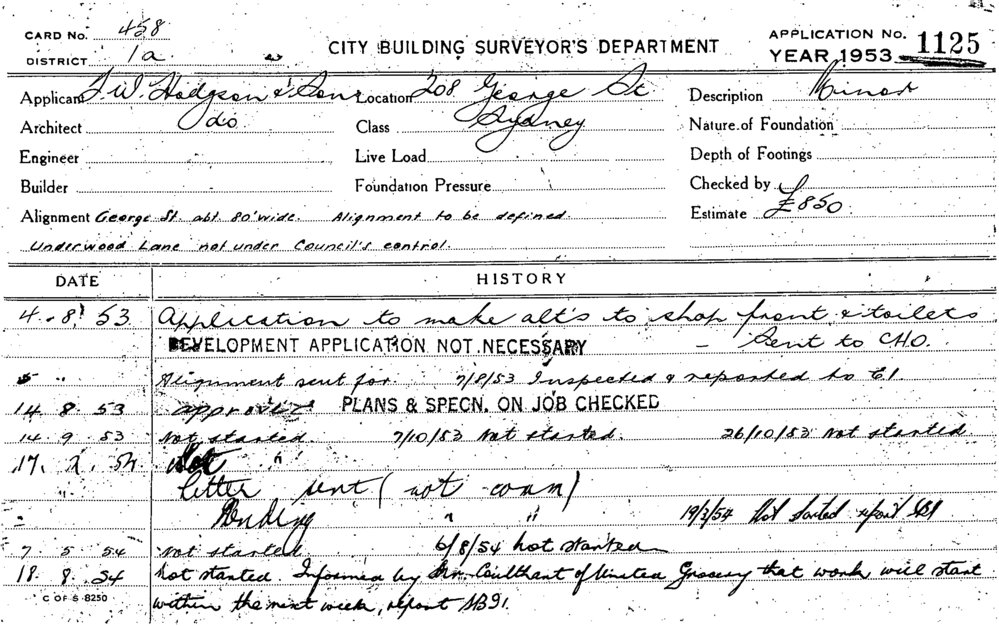 CARD No. 458
DISTRICT 1a
CITY BUILDING SURVEYOR'S DEPARTMENT
APPLICATION No. 1125
YEAR 1953
Applicant F.W. Hodgson & Sons Location 208 George St Description Minor
Architect do. Class Sydney Nature of Foundation
Engineer Live Load Depth of Footings
Builder Foundation Pressure Checked by
Alignment George St. abt 80' wide. Alignment to be defined Estimate £850
Underwood Lane not under Council's control.
DATE HISTORY
4.8.53 Application to make alt's to shop front & toilets
DEVELOPMENT APPLICATION NOT NECESSARY – Sent to CHO.
5 " Alignment sent for. 7/8/53 Inspected & reported to
14.8.53 approved PLANS & SPECN. ON JOB CHECKED
14.9.53 Not started. 7/10/53 Not started. 26/10/53 Not started.
17.2.54 Not "
" letter sent (not comm)
Pending " " 19/3/54 Not started report
7.5.54 Not started 6/8/54 not started
18.8.54 not started. Informed by Mr. Coulthart of United Grocery that work will start
C OF S 8250
within the next week, report